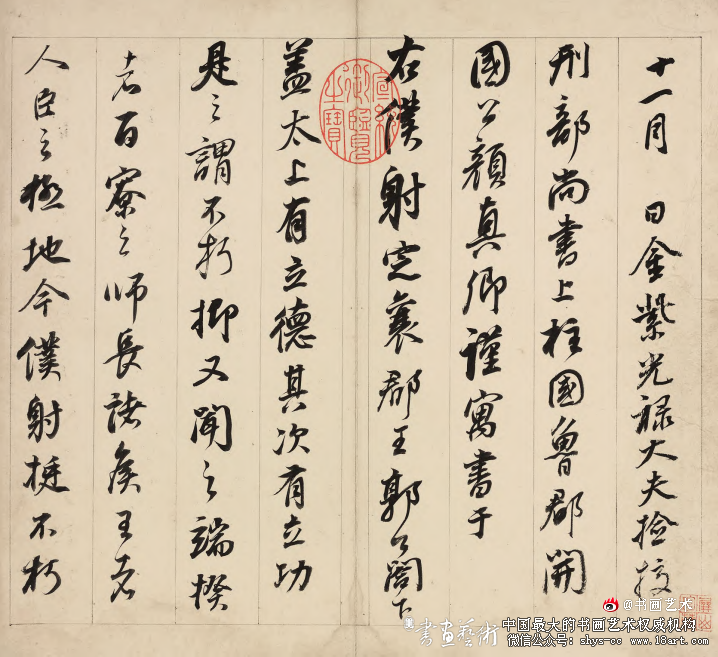 十一月 日金紫光祿大夫撿挍
刑部尚書上柱國魯郡開
國公顏真卿謹寓書于
右僕射定襄郡王郭公閤下
蓋太上有立德其次有立功
是之謂不朽抑又聞之端揆
者百寮之師長諸侯王者
人臣之極地今僕射挺不朽
宣統御覽之寶
@书画艺术
書畫藝術
中国最大的书画艺术权威机构
微信公众号: shys-cc www.18art.com